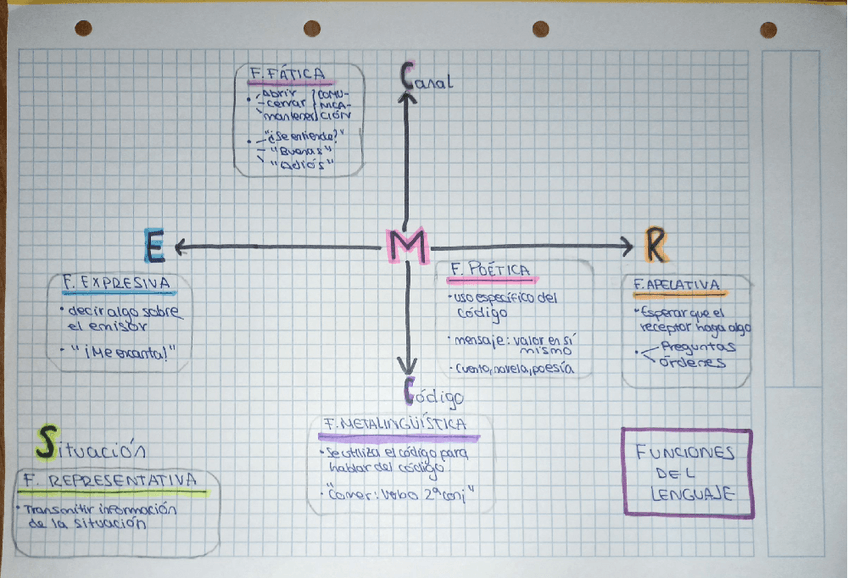 F. FÁTICA
• abrir
cerrar
mantener
COMU-
NICA-
CIÓN
• "¿Se entiende?"
"Buenas"
"Adiós"
Canal
E
M
R
F. EXPRESIVA
• decir algo sobre
el emisor
• "¡Me encanta!"
F. POÉTICA
• uso específico del
código
• mensaje: valor en sí
mismo
• Cuento, novela, poesía
F. APELATIVA
• Esperar que el
receptor haga algo
• Preguntas
órdenes
Código
F. METALINGÜÍSTICA
• Se utiliza el código para
hablar del código
• "Comer: verbo 2ª conj"
Situación
F. REPRESENTATIVA
• Transmitir información
de la situación
FUNCIONES
DEL
LENGUAJE